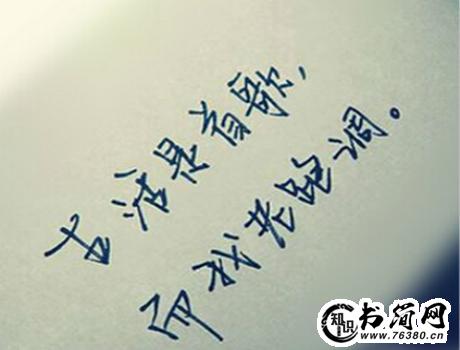 生活是首歌，
而我老跑调。
知识
书简网
www.76380.cn